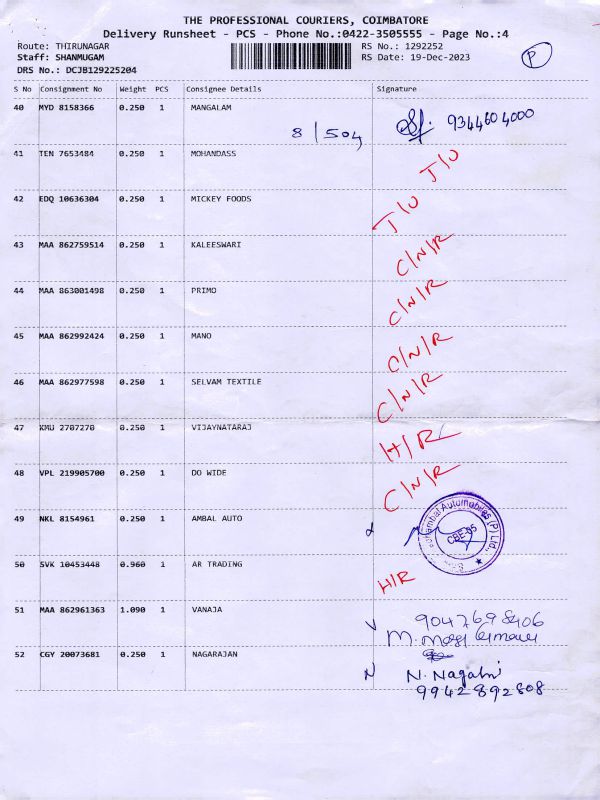 THE PROFESSIONAL COURIERS, COIMBATORE
Delivery Runsheet - PCS - Phone No.:0422-3505555 - Page No.:4
Route: THIRUNAGAR RS No.: 1292252
Staff: SHANMUGAM RS Date: 19-Dec-2023 P
DRS No.: DCJB129225204
S No Consignment No Weight PCS Consignee Details Signature
40 MYD 8158366 0.250 1 MANGALAM
8/504 9344604000
41 TEN 7653484 0.250 1 MOHANDASS J/U
42 EDQ 10636304 0.250 1 MICKEY FOODS J/U
43 MAA 862759514 0.250 1 KALEESWARI C/N/R
44 MAA 863001498 0.250 1 PRIMO C/N/R
45 MAA 862992424 0.250 1 MANO C/N/R
46 MAA 862977598 0.250 1 SELVAM TEXTILE C/N/R
47 KMU 2707270 0.250 1 VIJAYNATARAJ H/R
48 VPL 219905700 0.250 1 DO WIDE C/N/R
49 NKL 8154961 0.250 1 AMBAL AUTO
Automobiles (P) Ltd.,
CBE-05
50 SVK 10453448 0.960 1 AR TRADING H/R
51 MAA 862961363 1.090 1 VANAJA 9047698406
M.
52 CGY 20073681 0.250 1 NAGARAJAN N N. Nagalni
9942892808